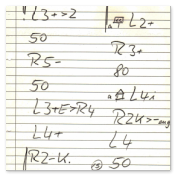 ! L3+>2
50
R5-
50
L3+E>R4
L4+
R2-K.
L2+
R3+
80
L4i
R2K>-eng
L4
50